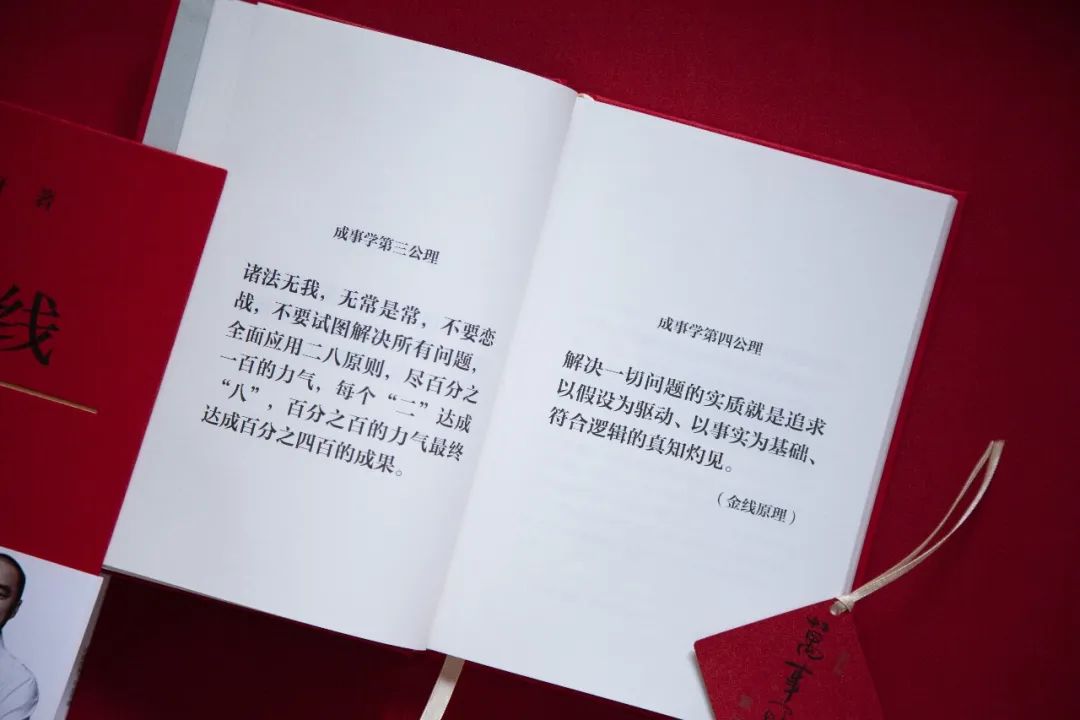 著
线
成事学第三公理
诸法无我，无常是常，不要恋
战，不要试图解决所有问题，
全面应用二八原则，尽百分之
一百的力气，每个“二”达成
“八”，百分之百的力气最终
达成百分之四百的成果。
成事学第四公理
解决一切问题的实质就是追求
以假设为驱动、以事实为基础、
符合逻辑的真知灼见。
（金线原理）
萬事